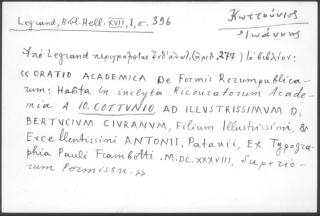 Legrand, Bibl. Hell. XVII, 1, σ. 396
Κωττούνιος
Ἰωάννης
Ὑπὸ Legrand περιγράφεται ἐνθ' ἀνωτ. (ἀριθ 277) τὸ βιβλίον:
«ORATIO ACADEMICA De Formis Rerumpublica-
rum: Habita In inclyta Ricouratorum Acade-
mia A IO. COTTUNIO, AD ILLUSTRISSIMUM D.
BERTUCIUM CIURANUM, Filium Illustrissimi, &
Excellentissimi ANTONII. Patauii, Ex Typogra-
phia Pauli Frambotti. M.DC.XXXVIII, Superio-
rum Permissu.»